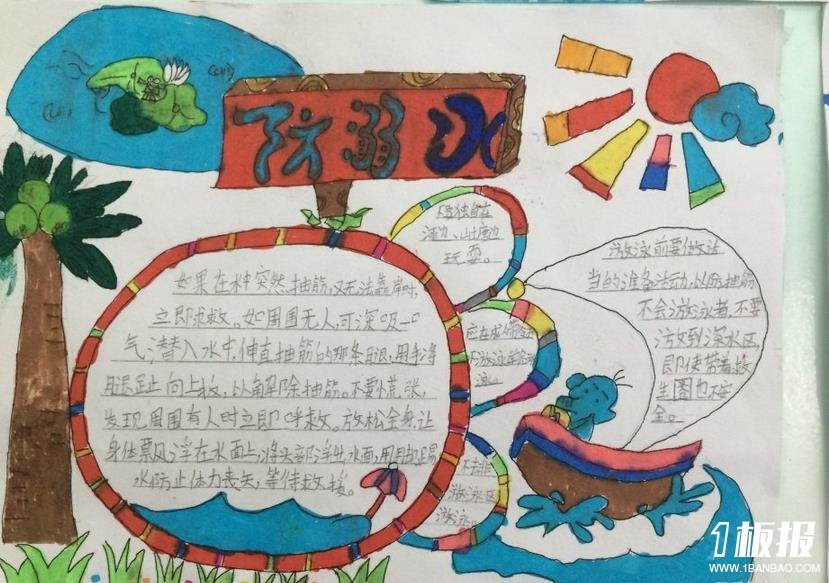 防溺水
如果在水中突然抽筋,又无法靠岸时,
立即求救。如周围无人,可深吸一口
气潜入水中,伸直抽筋的那条腿,用手将
腿趾向上扳,以解除抽筋。不要慌张,
发现周围有人时立即呼救。放松全身,让
身体漂浮在水面上,将头部浮出水面,用脚踢
水,防止体力丧失,等待救援。
不要独自在
河边、山塘边
玩耍。
应在成年
不去非
游泳区
游泳。
游泳前要做适
当的准备活动,以防抽筋
不会游泳者,不要
游到深水区,
即使带着救
生圈也不安
全。
1板报
WWW.1BANBAO.COM